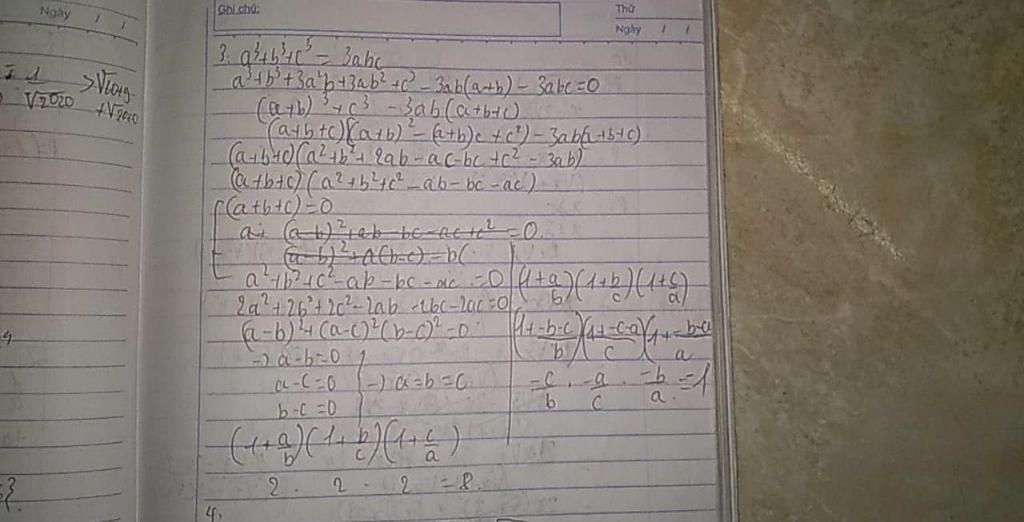 Ngày / /
Ghi chú:
Thứ
Ngày / /
1
√2020
> √2019
+√2020
3. a³+b³+c³ = 3abc
a³+b³+3a²b+3ab²+c³-3ab(a+b)-3abc=0
(a+b)³+c³ -3ab(a+b+c)
(a+b+c)((a+b)²-(a+b)c+c²)-3ab(a+b+c)
(a+b+c)(a²+b²+2ab-ac-bc+c²-3ab)
(a+b+c)(a²+b²+c²-ab-bc-ac)
(a+b+c)=0
(a-b)²+ab-bc-ac+c²=0
(a-b)²+a(b-c)-b(
a²+b²+c²-ab-bc-ac=0
2a²+2b²+2c²-2ab-2bc-2ac=0
(a-b)²+(a-c)²(b-c)²=0
→ a-b=0
a-c=0 } → a=b=c
b-c=0
(1+a/b)(1+b/c)(1+c/a)
2 . 2 . 2 = 8
(1+a/b)(1+b/c)(1+c/a)
(1+-b-c/b)(1+-c-a/c)(1+-b-a/a)
=-c/b . -a/c . -b/a =-1
4.